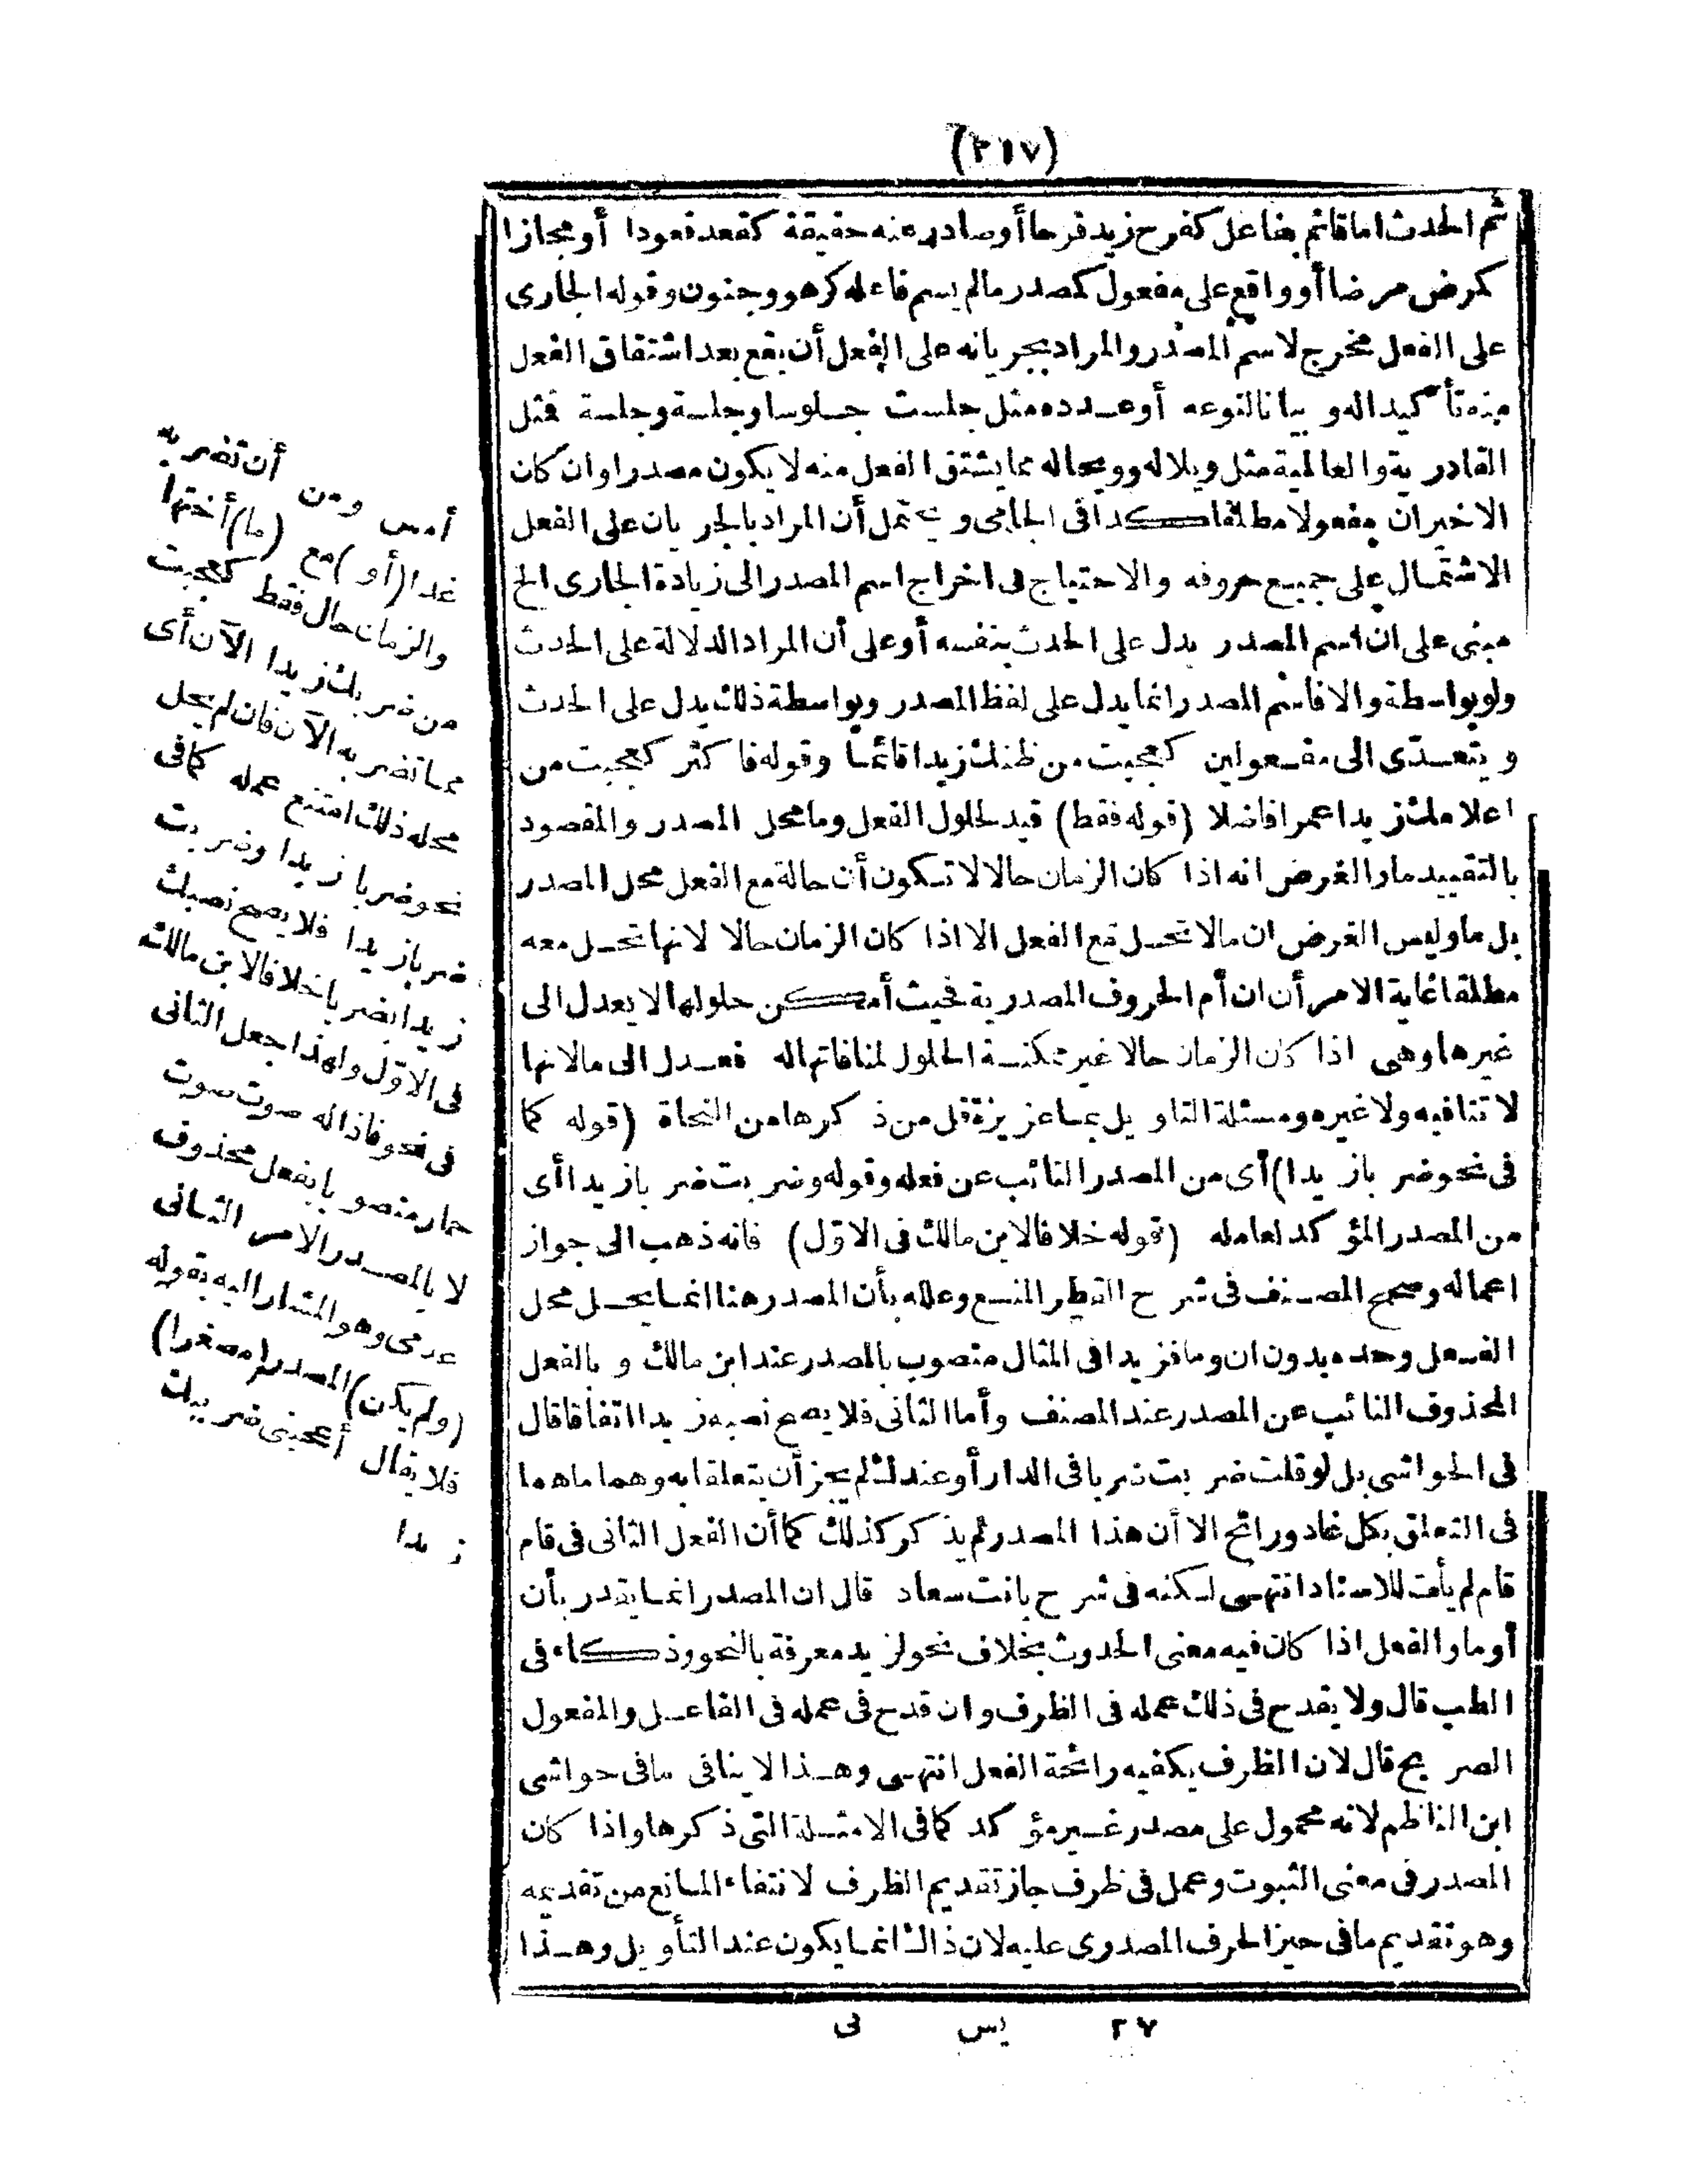 (٢١٧)
ثم الحدث اما قائم بفاعل كفرح زيد فرحا أو صادر عنه حقيقة كقعد قعودا أو مجازا
كمرض مرضا أو واقع على مفعول كمصدر ما لم يسم فاعله كزهو وجنون وقوله الجارى
على الفعل مخرج لاسم المصدر والمراد بجريانه على الفعل أن يقع بعد اشتقاق الفعل
منه تأكيدا له و بيانا لنوعه أو عدده مثل جلست جلوسا وجلسة وجلسة فمثل
القادرية والعالمية مثل ويلا له وويحا له مما يشتق الفعل منه لا يكون مصدرا وان كان
الاخيران مفعولا مطلقا كذا فى الجامى و يحتمل أن المراد بالجريان على الفعل
الاشتمال على جميع حروفه والاحتياج فى اخراج اسم المصدر الى زيادة الجارى الخ
مبنى على ان اسم المصدر يدل على الحدث بنفسه أو على أن المراد الدلالة على الحدث
ولو بواسطة والا فاسم المصدر انما يدل على لفظ المصدر وبواسطة ذلك يدل على الحدث
و يتعدّى الى مفعولين كعجبت من ظنك زيدا قائما وقوله فاكثر كعجبت من
اعلامك زيدا عمرا فاضلا (قوله فقط) قيد لحلول الفعل وما محل المصدر والمقصود
بالتقييد مارا الغرض انه اذا كان الزمان حالا لا تكون أن حالة مع الفعل محل المصدر
بل ما وليس الغرض ان ما لا تحل مع الفعل الا اذا كان الزمان حالا لانها تحل معه
مطلقا غاية الامر أن ان أم الحروف المصدرية فحيث أمكن حلولها لا يعدل الى
غيرها وهى اذا كان الزمان حالا غير ممكنة الحلول لمنافاتها له فعدل الى ما لانها
لا تنافيه ولا غيره ومسئلة التاويل بما عزيزة قل من ذكرها من النحاة (قوله كما
فى نحو ضربا زيدا) أى من المصدر النائب عن فعله وقوله وضربت ضربا زيدا أى
من المصدر المؤكد لعامله (قوله خلافا لابن مالك فى الاوّل) فانه ذهب الى جواز
اعماله وصحح المصنف فى شرح القطر المنع وعلله بأن المصدر هنا انما يحل محل
الفعل وحده بدون ان وما فزيدا فى المثال منصوب بالمصدر عند ابن مالك و بالفعل
المحذوف النائب عن المصدر عند المصنف وأما الثانى فلا يصح نصبه زيدا اتفاقا قال
فى الحواشى بل لو قلت ضربت ضربا فى الدار أو عندك لم يجز أن يتعلقا به وهما ما هما
فى التعلق بكل غاد ورائح الا أن هذا المصدر لم يذكر كذلك كما أن الفعل الثانى فى قام
قام لم يأت للاسناد انتهى لكنه فى شرح بانت سعاد قال ان المصدر انما يقدر بأن
أو ما والفعل اذا كان فيه معنى الحدوث بخلاف نحو لزيد معرفة بالنحو وذكاء فى
الطب قال ولا يقدح فى ذلك عمله فى الظرف وان قدح فى عمله فى الفاعل والمفعول
الصريح قال لان الظرف يكفيه رائحة الفعل انتهى وهذا لا ينافى ما فى حواشى
ابن الناظم لانه محمول على مصدر غير مؤكد كما فى الامثلة التى ذكرها واذا كان
المصدر فى معنى الثبوت وعمل فى ظرف جاز تقديم الظرف لانتفاء المانع من تقديمه
وهو تقديم ما فى حيز الحرف المصدرى عليه لان ذاك انما يكون عند التأويل وهذا
٢٧ يس نى
أن تضربه
أمس ومن
غدا (أو) مع (ما) أختها
والزمان حال فقط كعجبت
من ضربك زيدا الآن أى
مما تضربه الآن فان لم يحل
محله ذلك امتنع عمله كما فى
نحو ضربا زيدا وضربت
ضربا زيدا فلا يصح نصبك
زيدا بضربا خلافا لابن مالك
فى الاوّل ولهذا جعل الثانى
فى نحو فاذا له صوت صوت
حمار منصوبا بفعل محذوف
لا بالمصدر الامر الثانى
عدمى وهو المشار اليه بقوله
(ولم يكن) المصدر (مصغرا)
فلا يقال أعجبنى ضريبك
زيدا